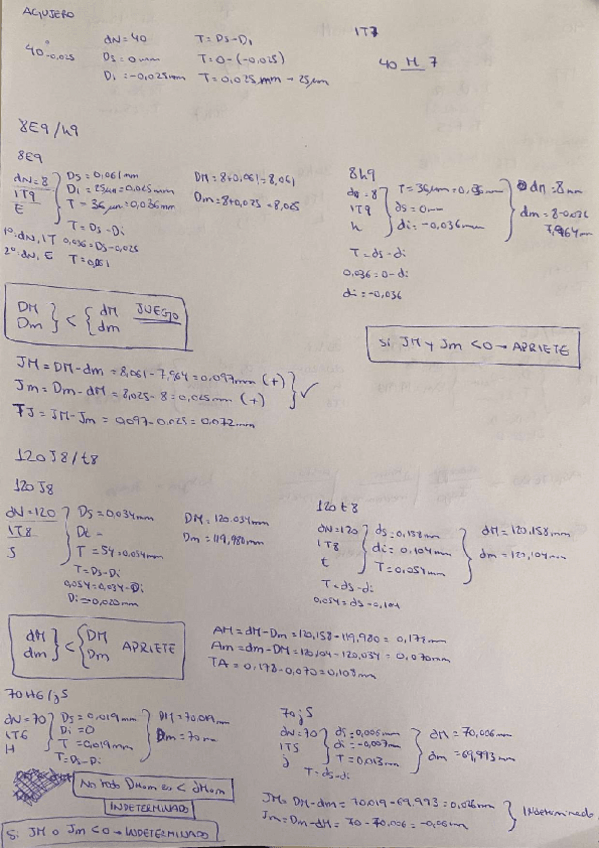 AGUJERO
40 0 -0,025
dN = 40 T = Ds - Di
Ds = 0 mm T = 0 - (-0,025)
Di = -0,025mm T = 0,025 mm → 25 µm
IT7
40 H 7
8E9/h9
8E9
dN = 8
IT9
E
Ds = 0,061mm
Di = 25µm = 0,025mm
T = 36 µm = 0,036mm
T = Ds - Di
DM = 8+0,061 = 8,061
Dm = 8+0,025 = 8,025
1º: dN, IT 0,036 = Ds - 0,025
2º: dN, E T = 0,061
8h9
dN = 8
IT9
h
T = 36µm = 0,036mm
ds = 0mm
di = -0,036mm
dM = 8mm
dm = 8-0.036
7,964mm
T = ds - di
0,036 = 0 - di
di = -0,036
DM
Dm } < { dM
dm
JUEGO
Si JM y Jm < 0 → APRIETE
JM = DM - dm = 8,061 - 7,964 = 0,097mm (+)
Jm = Dm - dM = 8,025 - 8 = 0,025mm (+) ✓
TJ = JM - Jm = 0,097 - 0,025 = 0,072mm
120J8/t8
120J8
dN = 120
IT8
J
Ds = 0,034mm
Di =
T = 54 = 0,054mm
T = Ds - Di
0,054 = 0,034 - Di
Di = -0,020mm
DM = 120.034mm
Dm = 119,980mm
120 t8
dN = 120
IT8
t
ds = 0,158mm
di = 0,104mm
T = 0,054mm
dM = 120,158mm
dm = 120,104mm
T = ds - di
0,054 = ds - 0,104
dM
dm } < { DM
Dm
APRIETE
AM = dM - Dm = 120,158 - 119,980 = 0,178mm
Am = dm - DM = 120,104 - 120,034 = 0,070mm
TA = 0,178 - 0,070 = 0,108mm
70H6/j5
dN = 70
IT6
H
Ds = 0,019mm
Di = 0
T = 0,019mm
T = Ds - Di
DM = 70,019mm
Dm = 70mm
70j5
dN = 70
IT5
j
ds = 0,006mm
di = -0,007mm
T = 0,013mm
T = ds - di
dM = 70,006mm
dm = 69,993mm
No todo DM o m es < dM o m
INDETERMINADO
Si JM o Jm < 0 → INDETERMINADO
JM = DM - dm = 70.019 - 69,993 = 0,026mm
Jm = Dm - dM = 70 - 70.006 = -0,06mm
Indeterminado